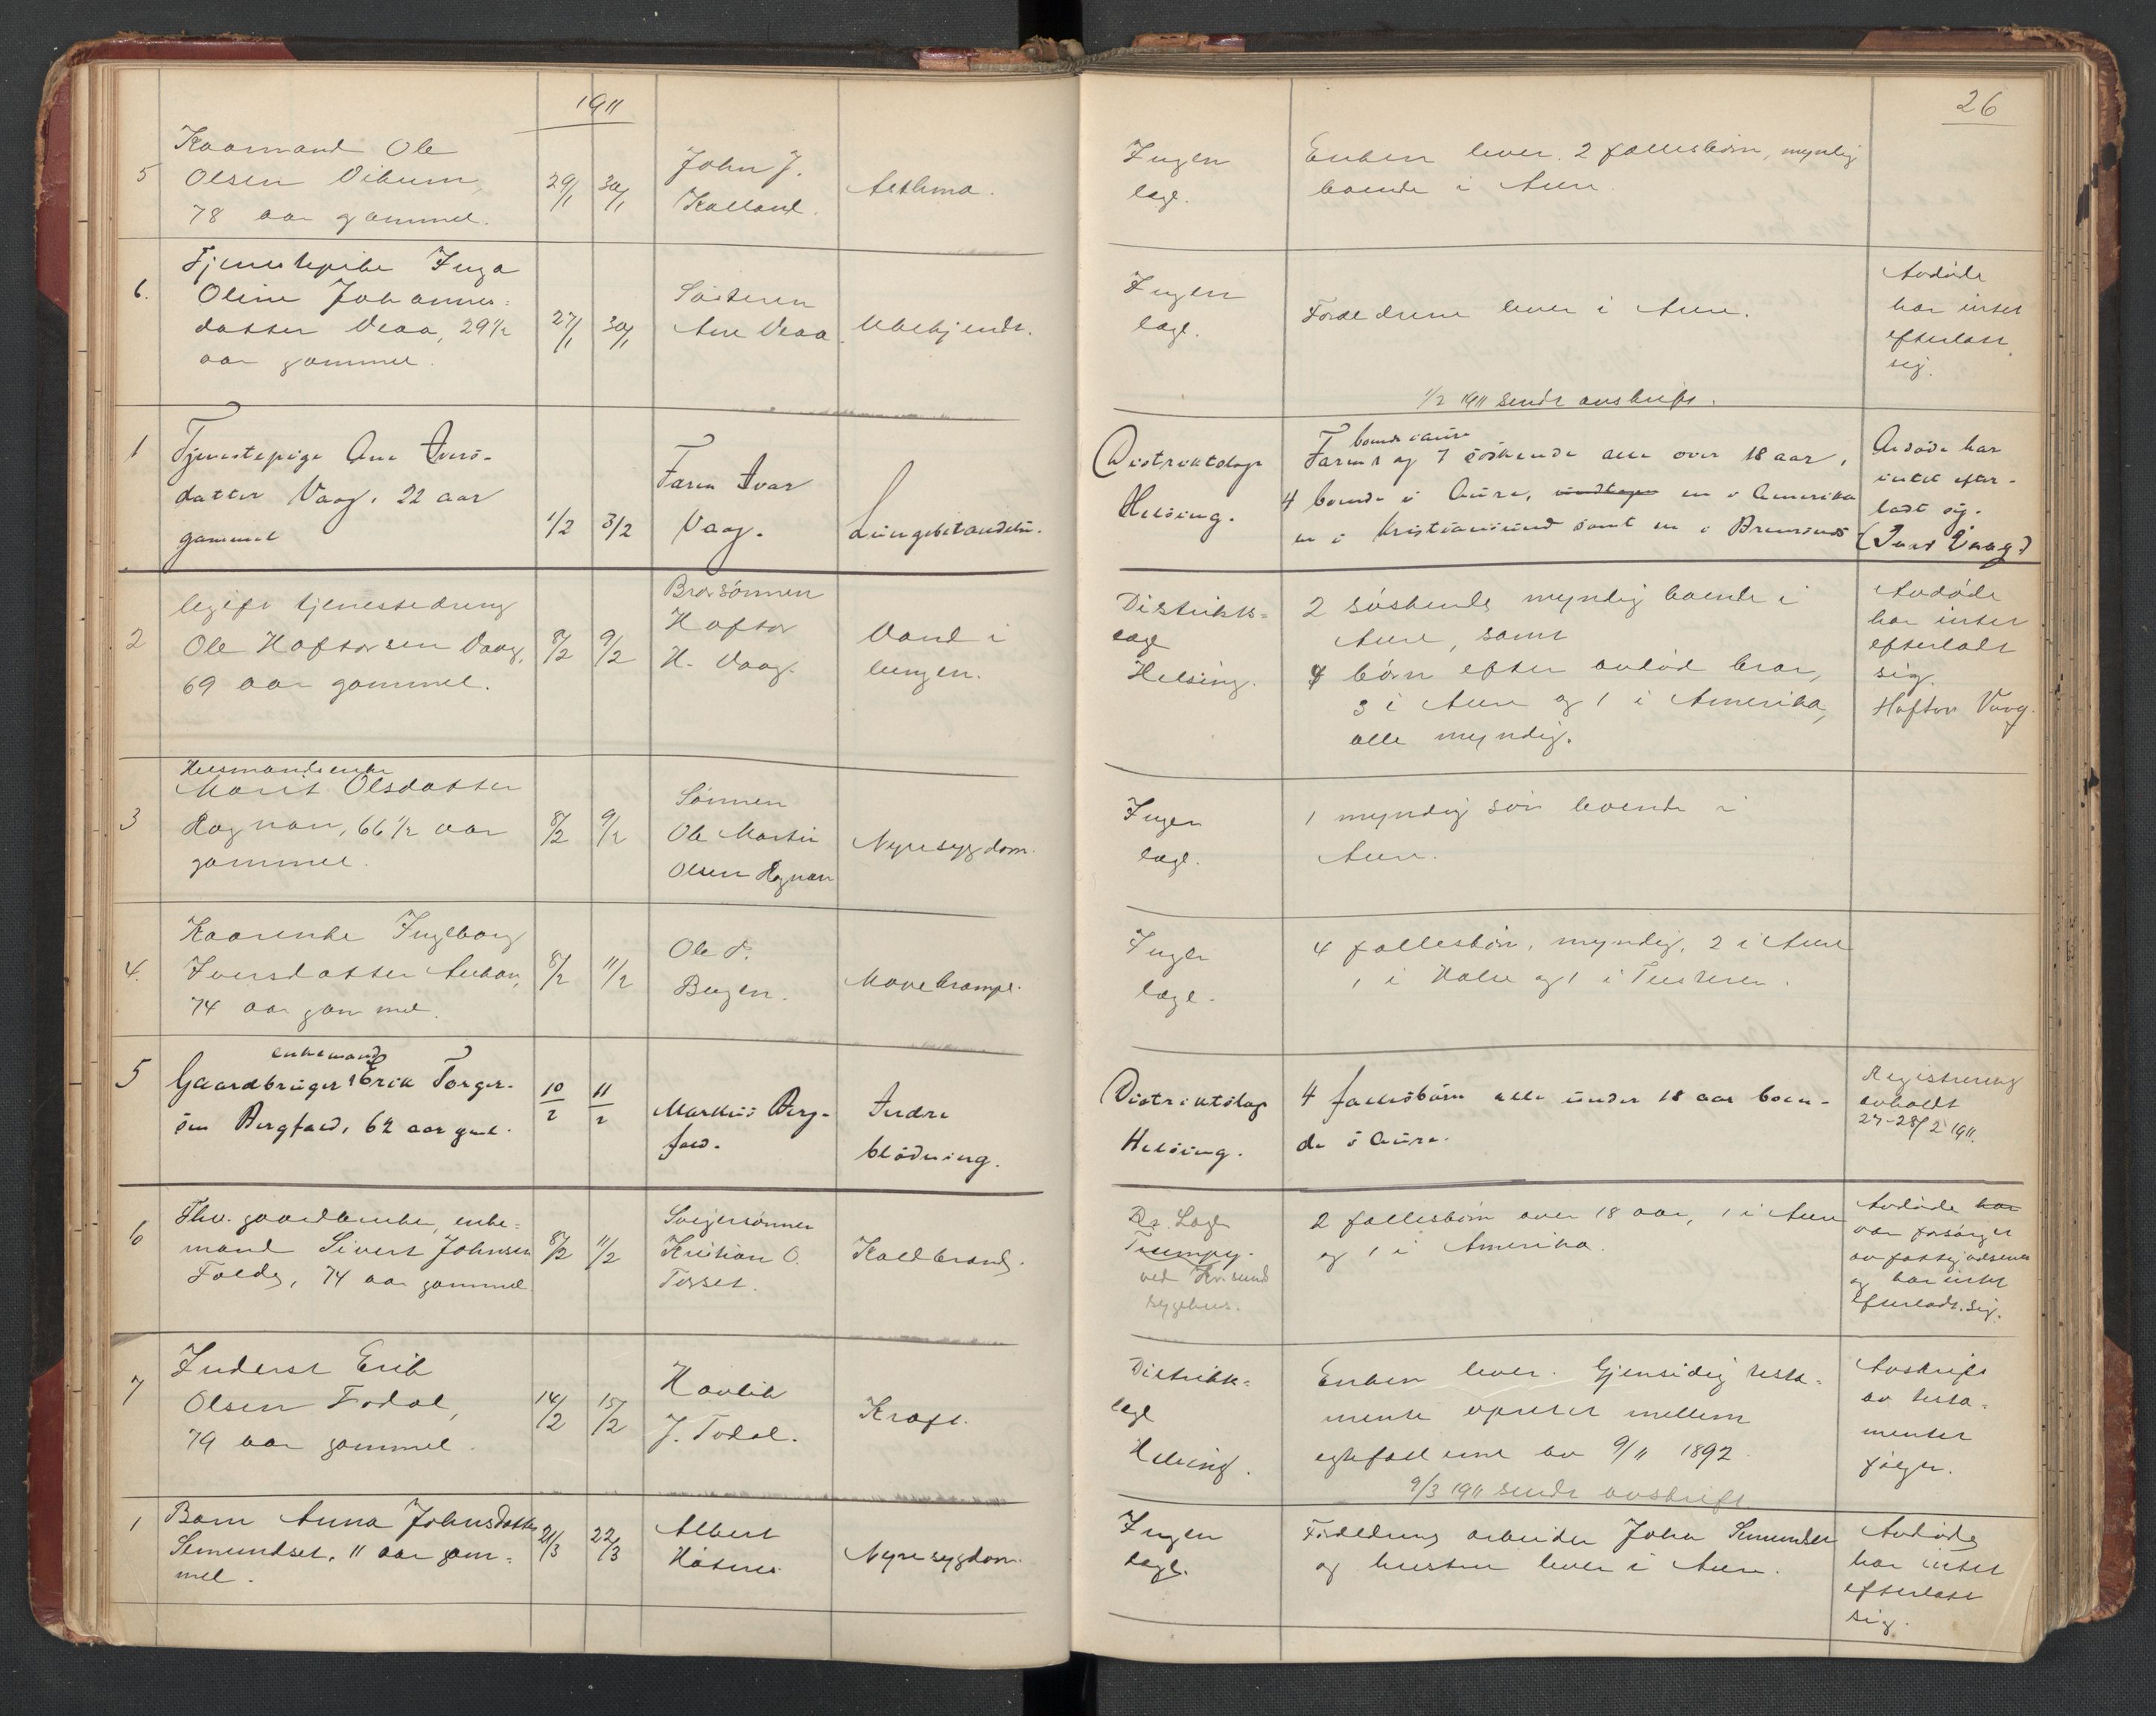 1911
5
Kaarmand Ole
Olsen Vikum,
78 aar gammel.
29/1
30/1
John J.
Kalland.
Asthma.
6.
Tjenestepike Inga
Oline Johannes-
datter Veaa, 29½
aar gammel.
27/1
30/1
Søsteren
Ane Veaa.
Ubekjendt.
1
Tjenestepige Ane Ivers-
datter Vaag, 22 aar
gammel
1/2
3/2
Faren Ivar
Vaag.
Lungebetændelse.
2
Ugift tjenestedreng
Ole Haftorsen Vaag,
69 aar gammel.
8/2
9/2
Brorsønnen
Haftor
H. Vaag.
Vand i
lungen.
3
Husmandsenke
Marit Olsdatter
Rognan, 66½ aar
gammel.
8/2
9/2
Sønnen
Ole Martin
Olsen Rognan
Nyresygdom.
4.
Kaarenke Ingeborg
Iversdatter
74 aar gammel.
8/2
11/2
Ole P.
Bugen.
Mavekrampe.
5
enkemand
Gaardbruger Erik Torger-
sen Bergfald, 62 aar gml.
10/2
11/2
Markus Berg-
fald.
Indre
blødning.
6
Fhv. gaardbruker, enke-
mand Sivert Johnsen
Folde, 74 aar gammel.
8/2
11/2
Svigersønnen
Kristian O.
Torset.
Koldbrand.
7
Inderst Erik
Olsen Todal,
79 aar gammel.
14/2
15/2
Havlik
J. Todal.
Kræft.
1
Barn Anna Johnsdatter
Semundset, 11 aar gam-
mel.
21/3
22/3
Albert
Nyresygdom.
26
Ingen
læge.
Enken lever. 2 fællesbørn, myndig
boende i Aure.
Ingen
læge.
Forældrene lever i Aure.
1/2 1911 sendt avskrift.
Avdøde
har intet
efterlatt
sig.
Distriktslæge
Helsing.
boende i Aure
Faren og 7 søskende alle over 18 aar,
4 boende i Aure, en i Amerika
en i Kristiansund samt en i Bremsnes
Avdøde har
intet efter-
ladt sig.
(Ivar Vaag)
Distrikts-
læge
Helsing.
2 søskende myndig boende i
Aure, samt
4 børn efter avdød bror,
3 i Aure og 1 i Amerika,
alle myndig.
Avdøde
har intet
efterladt
sig.
Haftor Vaag.
Ingen
læge.
1 myndig søn boende i
Aure.
Ingen
læge.
4 fællesbørn, myndig, 2 i Aure
1 i Halse og 1 i Tustern.
Distriktslæge
Helsing.
4 fællesbørn alle under 18 aar boen-
de i Aure.
Registrering
avholdt
27-28/2 1911.
Dr. Læge
Trumpy.
ved Kr.sund
sygehus.
2 fællesbørn over 18 aar, 1 i Aure
og 1 i Amerika.
Avdøde har
var forsørget
av fattigvæsenet
og har intet
efterladt sig.
Distrikts-
læge
Helsing.
Enken lever. Gjensidig testa-
mente oprettet mellem
egtefællerne av 9/11 1892.
9/3 1911 sendt avskrift
Avskrift
av testa-
mentet
følger.
Ingen
læge.
Forældrene arbeider John Semundset
og hustru lever i Aure.
Avdøde
har intet
efterlatt
sig.